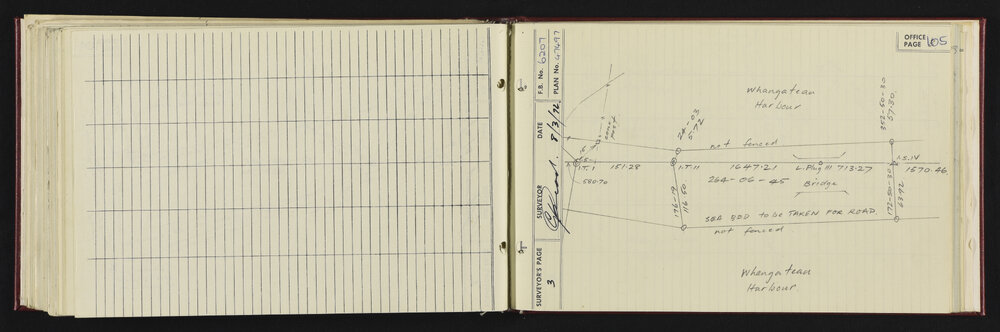 OFFICE PAGE 105
F.B. No. 6207
PLAN No. 47497
DATE 8/3/72
SURVEYOR
SURVEYOR'S PAGE 3
Whangateau
Harbour
352-50-30
57.30
24-03
5.72
not fenced
I.T.I
151.28
I.T.II
1647.21
L.Plug III
713.27
I.S.IV
1570.46
580.70
264-06-45
Bridge
196-19
116.50
172-50-30
63.92
SEA BED to be TAKEN FOR ROAD.
not fenced
Whangateau
Harbour.